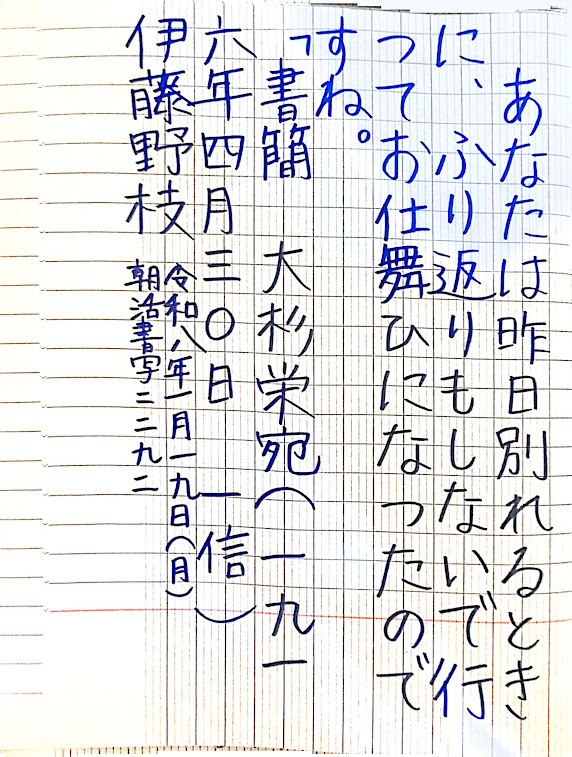 あなたは昨日別れるとき
に、ふり返りもしないで行
つてお仕舞ひになつたので
すね。
「書簡　大杉栄宛（一九一
六年四月三〇日　一信）
伊藤野枝
令和八年一月一九日（月）
朝活書写二二九二